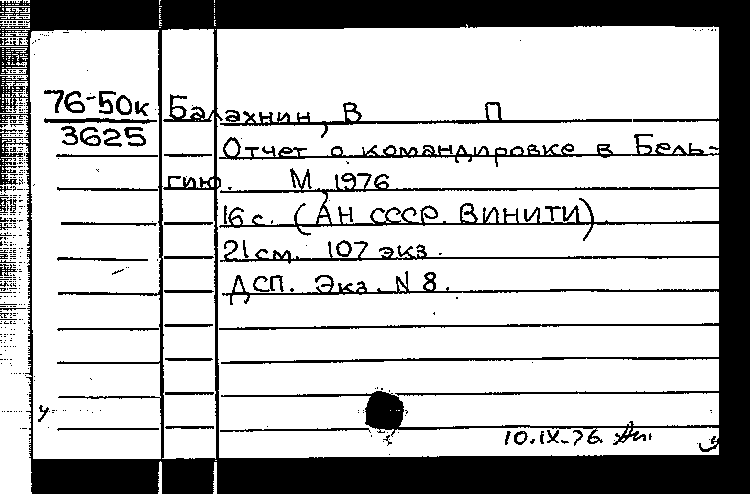 76-50к
3625
Балахнин, В П
Отчет о командировке в Бель-
гию. М, 1976
16 с. (АН СССР. ВИНИТИ).
21 см. 107 экз.
ДСП. Экз. N 8.
у
10.IX-76